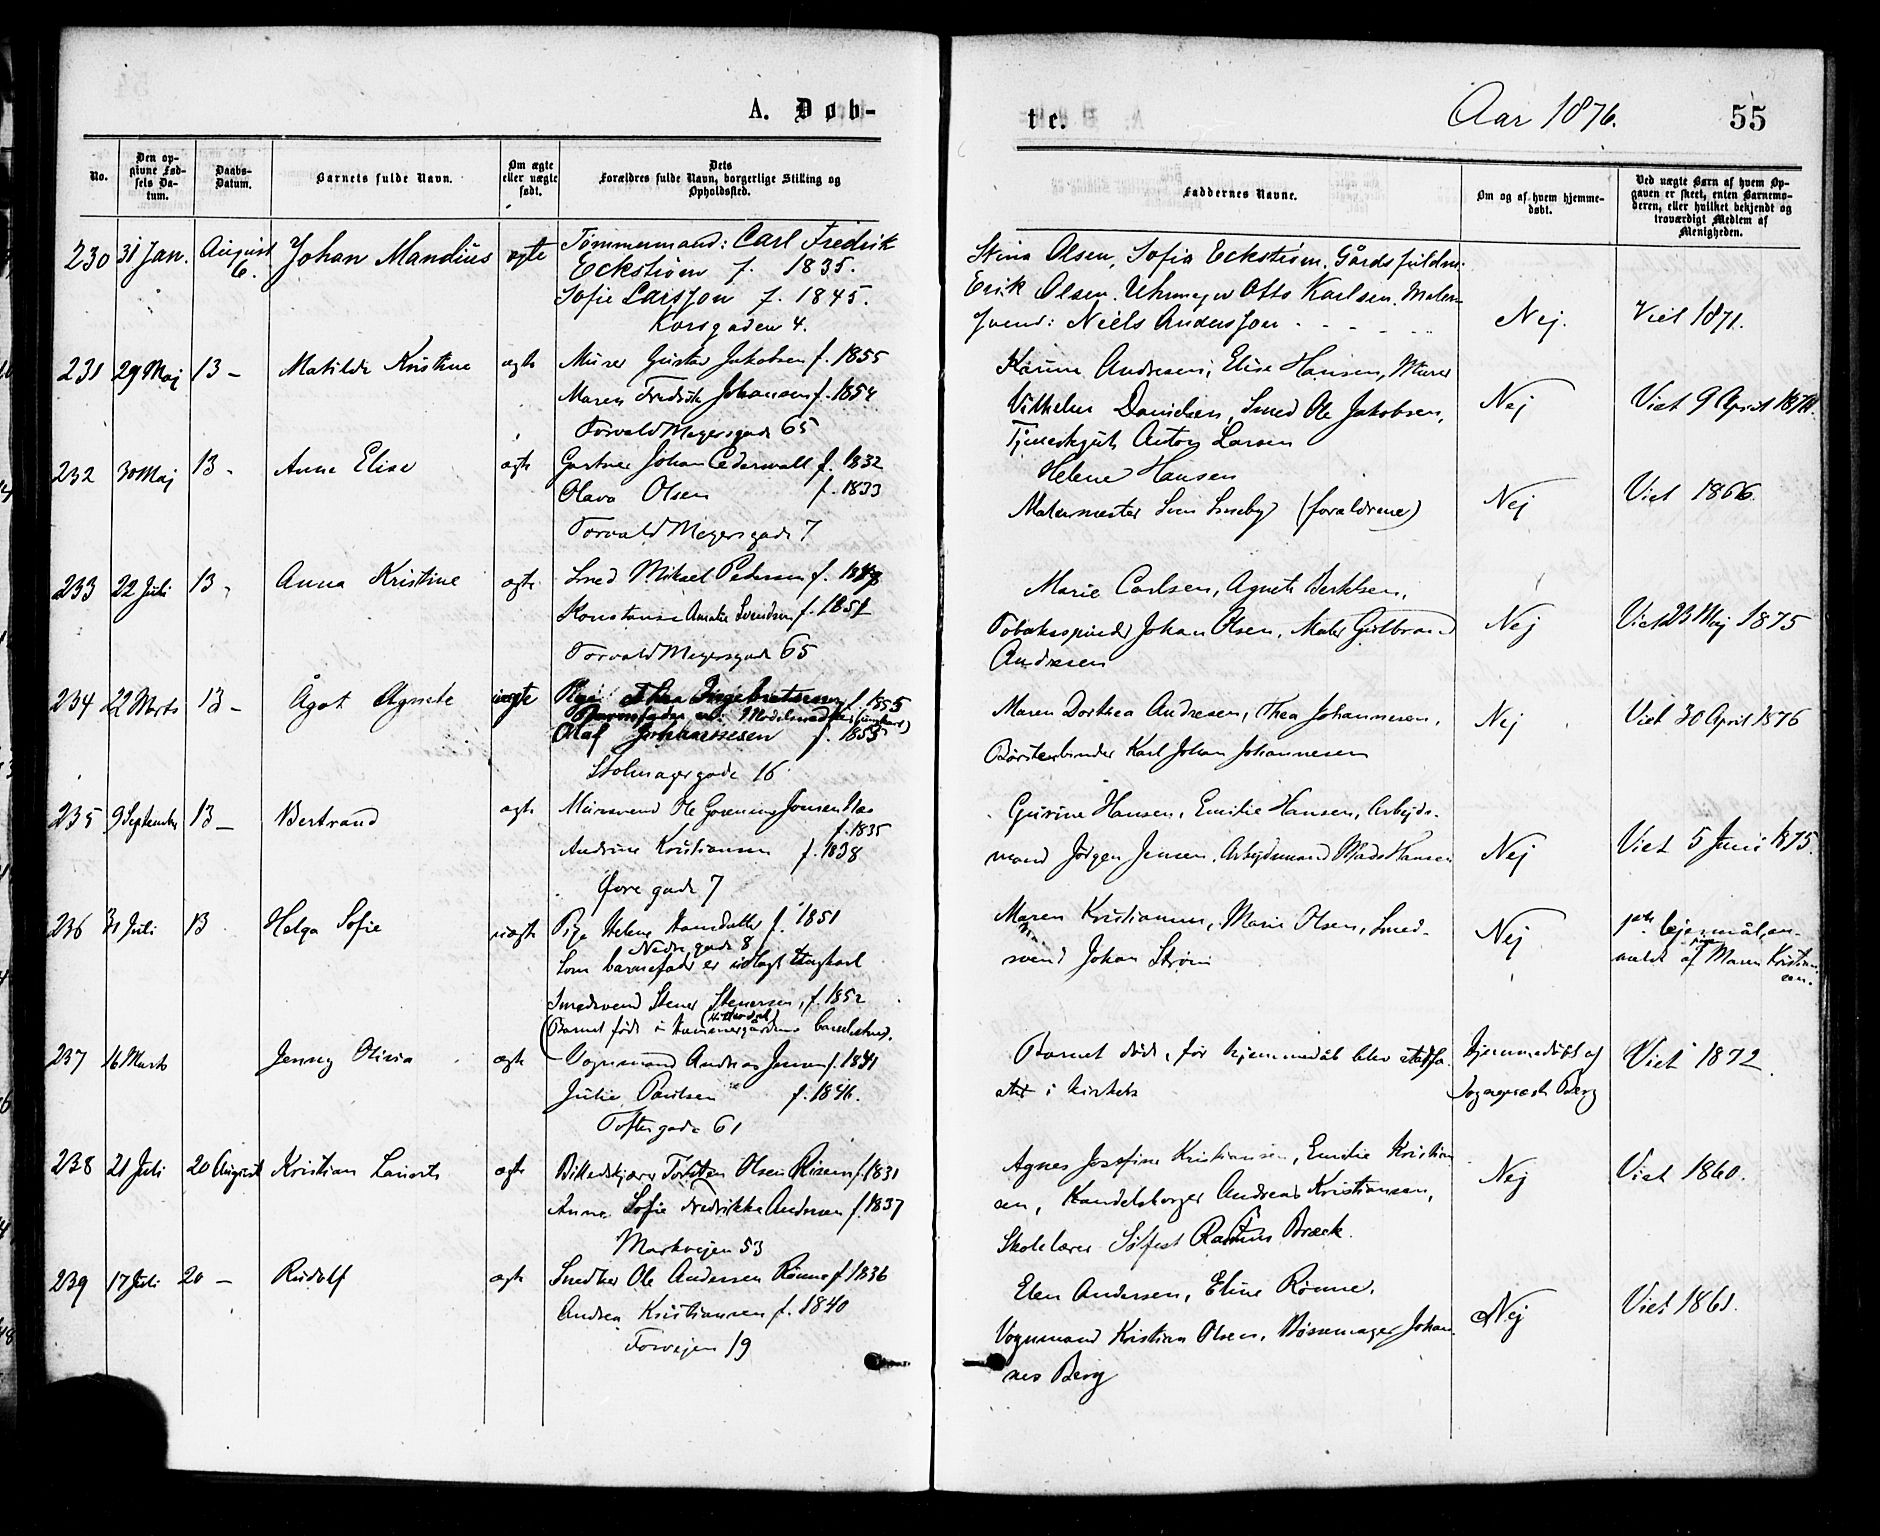 A. Døb-
te.
Aar 1876.
55
No.
Den op-
givne Fød-
sels Da-
tum.
Daabs-
Datum.
Barnets fulde Navn.
Om ægte
eller uægte
født.
Dets
Forældres fulde Navn, borgerlige Stilling og
Opholdssted.
Faddernes Navne.
Om og af hvem hjemme-
døbt.
Ved uægte Børn af hvem Op-
gaven er skeet, enten Barnemo-
deren, eller hvilket bekjendt og
troværdigt Medlem af
Menigheden.
230 31 Jan. August 6. Johan Mandius ægte Tømmermand: Carl Fredrik
Eckstrøm f. 1835.
Sofie Larsson f. 1845.
Korsgaden 4.
Stina Olsen, Sofia Eckstrøm,
Erik Olsen, Uhrmager Otto Karlsen, Maler-
svend: Niels Andersson
Nej.
Viet 1871.
231 29 Maj 13 – Matilde Kristine ægte Murer Gustav Jakobsen f. 1855
Maren Fredrikke Johansen f. 1854
Torvald Meyersgade 65
Karine Andresen, Elise Hansen, Murer
Vilhelm Danielsen, Smed Ole Jakobsen,
Tjenestegut Anton Larsen
Nej
Viet 9 April 1876.
232 30 Maj 13 – Anne Elise ægte Gartner Johan Cederwall f. 1832
Olava Olsen f. 1833
Torvald Meyersgade 7
Helene Hansen
Malermester Sven (forældrene)
Nej
Viet 1866.
233 22 Juli 13 – Anna Kristine ægte Smed Mikael Pedersen f.
Konstanse Amalie Svendsen f. 1851
Torvald Meyersgade 65
Marie Carlsen, Agnete Bertelsen,
Tobakspinder Johan Olsen, Maler Gulbrand
Andresen
Nej
Viet 23 Maj 1875
234 22 Marts 13 – Ågot Agnete uægte Pige Thea Ingebretsen f. 1855
Barnefader er: Modelsnedker (ungkarl)
Olaf Johannesen f. 1855
Stolmagergade 16
Maren Dorthea Andresen, Thea Johannesen,
Børstenbinder Karl Johan Johannesen
Nej
Viet 30 April 1876
235 9 September 13 – Bertrand ægte Mursvend Ole Jonsen
f. 1835
Andrine Kristiansen f. 1838
Øvre gade 7
Gurine Hansen, Emilie Hansen, Arbejds-
mand Jørgen Jensen, Arbejdsmand Mads Hansen
Nej
Viet 5 Juni 1875.
236 31 Juli 13 Helga Sofie uægte Pige Helene Hansdatter f. 1851
Nedre gade 8
Som barnefader er udlagt Ungkarl
Smedsvend Stener Stenersen, f. 1852
(Barnet født i barselstue.
Maren Kristiansen, Marie Olsen, Smed-
svend Johan Strøm
Nej
1ste lejermål, an-
meldt af pigen Maren Kristian-
sen.
237 16 Marts Jenny Olivia ægte Vognmand Andreas Jensen f. 1841
Julie Paulsen f. 1846.
Toftes gade 61
Barnet døde, før hjemmedåb blev stadfæ-
stet i kirken
Hjemmedøbt af
Sognepræst Berg
Viet 1872.
238 21 Juli 20 August Kristian Laurits ægte Billedskjærer Torsten Olsen Risem f. 1831
Anne Sofie Fredrikke Andersen f. 1837
Markvejen 53
Agnes Josefine Kristiansen, Emilie Kristian-
sen, Handelsborger Andreas Kristiansen,
Skolelærer Sølfest Rasmus Bræck.
Nej
Viet 1860.
239 17 Juli 20 – Rudolf ægte Snedker Ole Andersen Rønne f. 1836
Andrea Kristiansen f. 1840
Torvejen 19
Elen Andersen, Eline Rønne,
Vognmand Kristian Olsen, Bøssemager Johan-
nes Berg
Nej
Viet 1861.